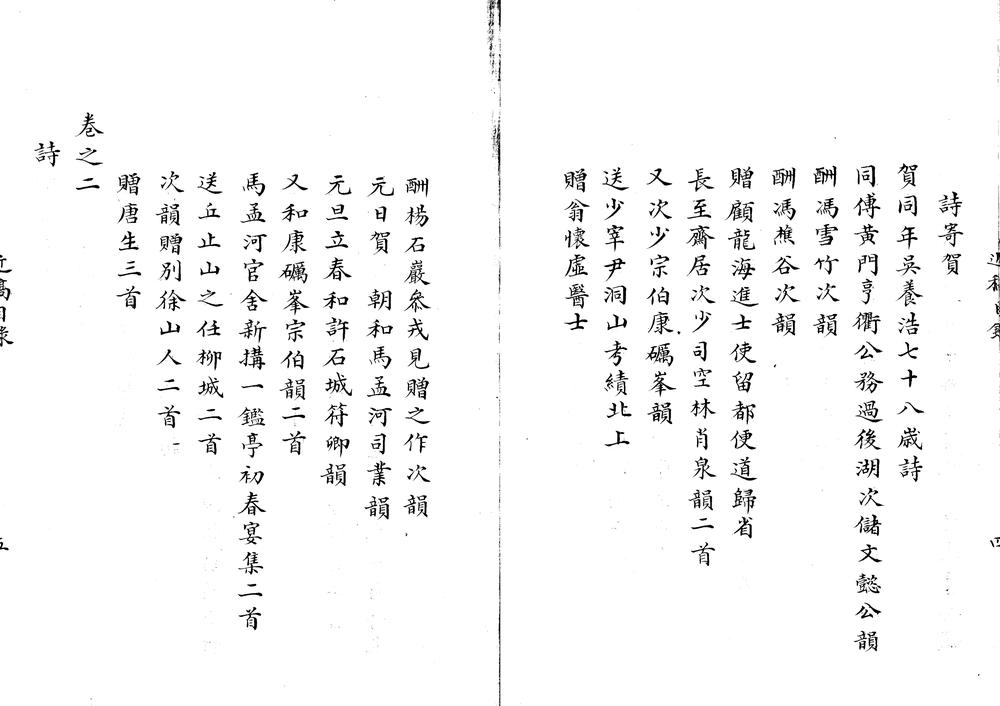 詩寄賀
賀同年吳養浩七十八歲詩
同傅黃門亨衢公務過後湖次儲文懿公韻
酬馮雪竹次韻
酬馮樵谷次韻
贈顧龍海進士使留都便道歸省
長至齋居次少司空林肖泉韻二首
又次少宗伯康礪峯韻
送少宰尹洞山考績北上
贈翁懷虛醫士
酬楊石巖叅戎見贈之作次韻
元日賀　朝和馬孟河司業韻
元旦立春和許石城符卿韻
又和康礪峯宗伯韻二首
馬孟河官舍新搆一鑑亭初春宴集二首
送丘止山之任柳城二首
次韻贈別徐山人二首
贈唐生三首
卷之二
詩